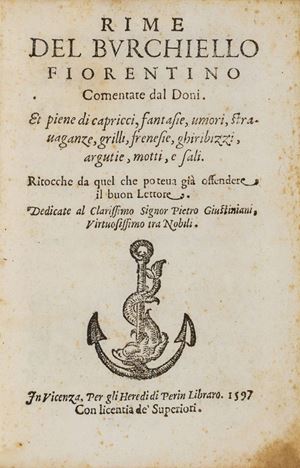 RIME
DEL BVRCHIELLO
FIORENTINO
Comentate dal Doni.
Et piene di capricci, fantasie, umori, stra-
uaganze, grilli, frenesie, ghiribizzi,
argutie, motti, e sali.
Ritocche da quel che poteua già offendere
il buon Lettore.
Dedicate al Clarissimo Signor Pietro Giustiniani,
Virtuosissimo tra Nobili.
In Vicenza, Per gli Heredi di Perin Libraro. 1597
Con licentia de' Superiori.